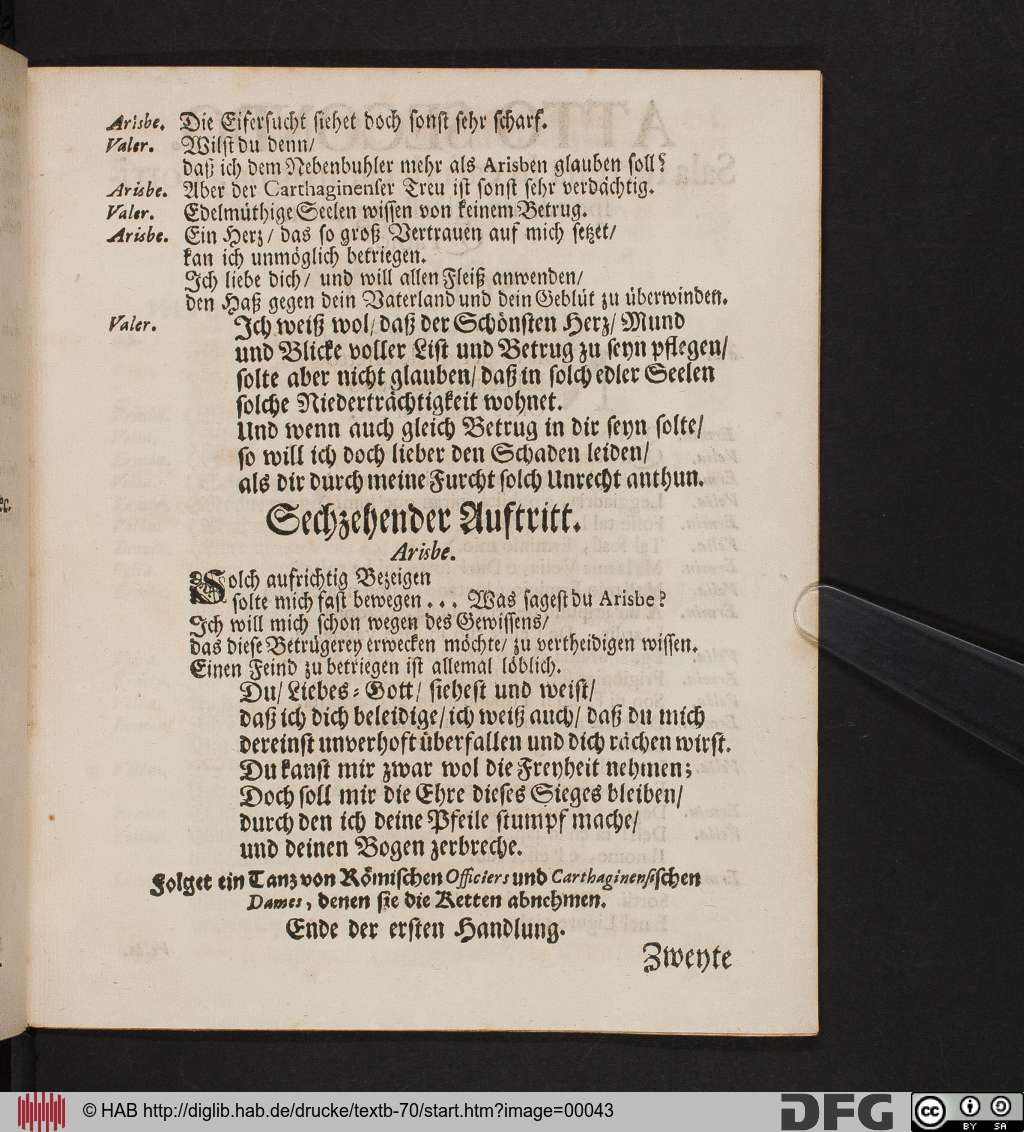 Arisbe. Die Eifersucht siehet doch sonst sehr scharf.
Valer. Wilst du denn/
daß ich dem Nebenbuhler mehr als Arisben glauben soll?
Arisbe. Aber der Carthaginenser Treu ist sonst sehr verdächtig.
Valer. Edelmüthige Seelen wissen von keinem Betrug.
Arisbe. Ein Herz/ das so groß Vertrauen auf mich setzet/
kan ich unmöglich betriegen.
Ich liebe dich/ und will allen Fleiß anwenden/
den Haß gegen dein Vaterland und dein Geblüt zu überwinden.
Valer. Ich weiß wol/ daß der Schönsten Herz/ Mund
und Blicke voller List und Betrug zu seyn pflegen/
solte aber nicht glauben/ daß in solch edler Seelen
solche Niederträchtigkeit wohnet.
Und wenn auch gleich Betrug in dir seyn solte/
so will ich doch lieber den Schaden leiden/
als dir durch meine Furcht solch Unrecht anthun.
Sechzehender Auftritt.
Arisbe.
Solch aufrichtig Bezeigen
solte mich fast bewegen... Was sagest du Arisbe?
Ich will mich schon wegen des Gewissens/
das diese Betrügerey erwecken möchte/ zu vertheidigen wissen.
Einen Feind zu betriegen ist allemal löblich.
Du/ Liebes-Gott/ siehest und weist/
daß ich dich beleidige/ ich weiß auch/ daß du mich
dereinst unverhoft überfallen und dich rächen wirst.
Du kanst mir zwar wol die Freyheit nehmen;
Doch soll mir die Ehre dieses Sieges bleiben/
durch den ich deine Pfeile stumpf mache/
und deinen Bogen zerbreche.
Folget ein Tanz von Römischen Officiers und Carthaginensischen
Dames, denen sie die Ketten abnehmen.
Ende der ersten Handlung.
Zweyte
© HAB http://diglib.hab.de/drucke/textb-70/start.htm?image=00043
DFG
cc BY SA